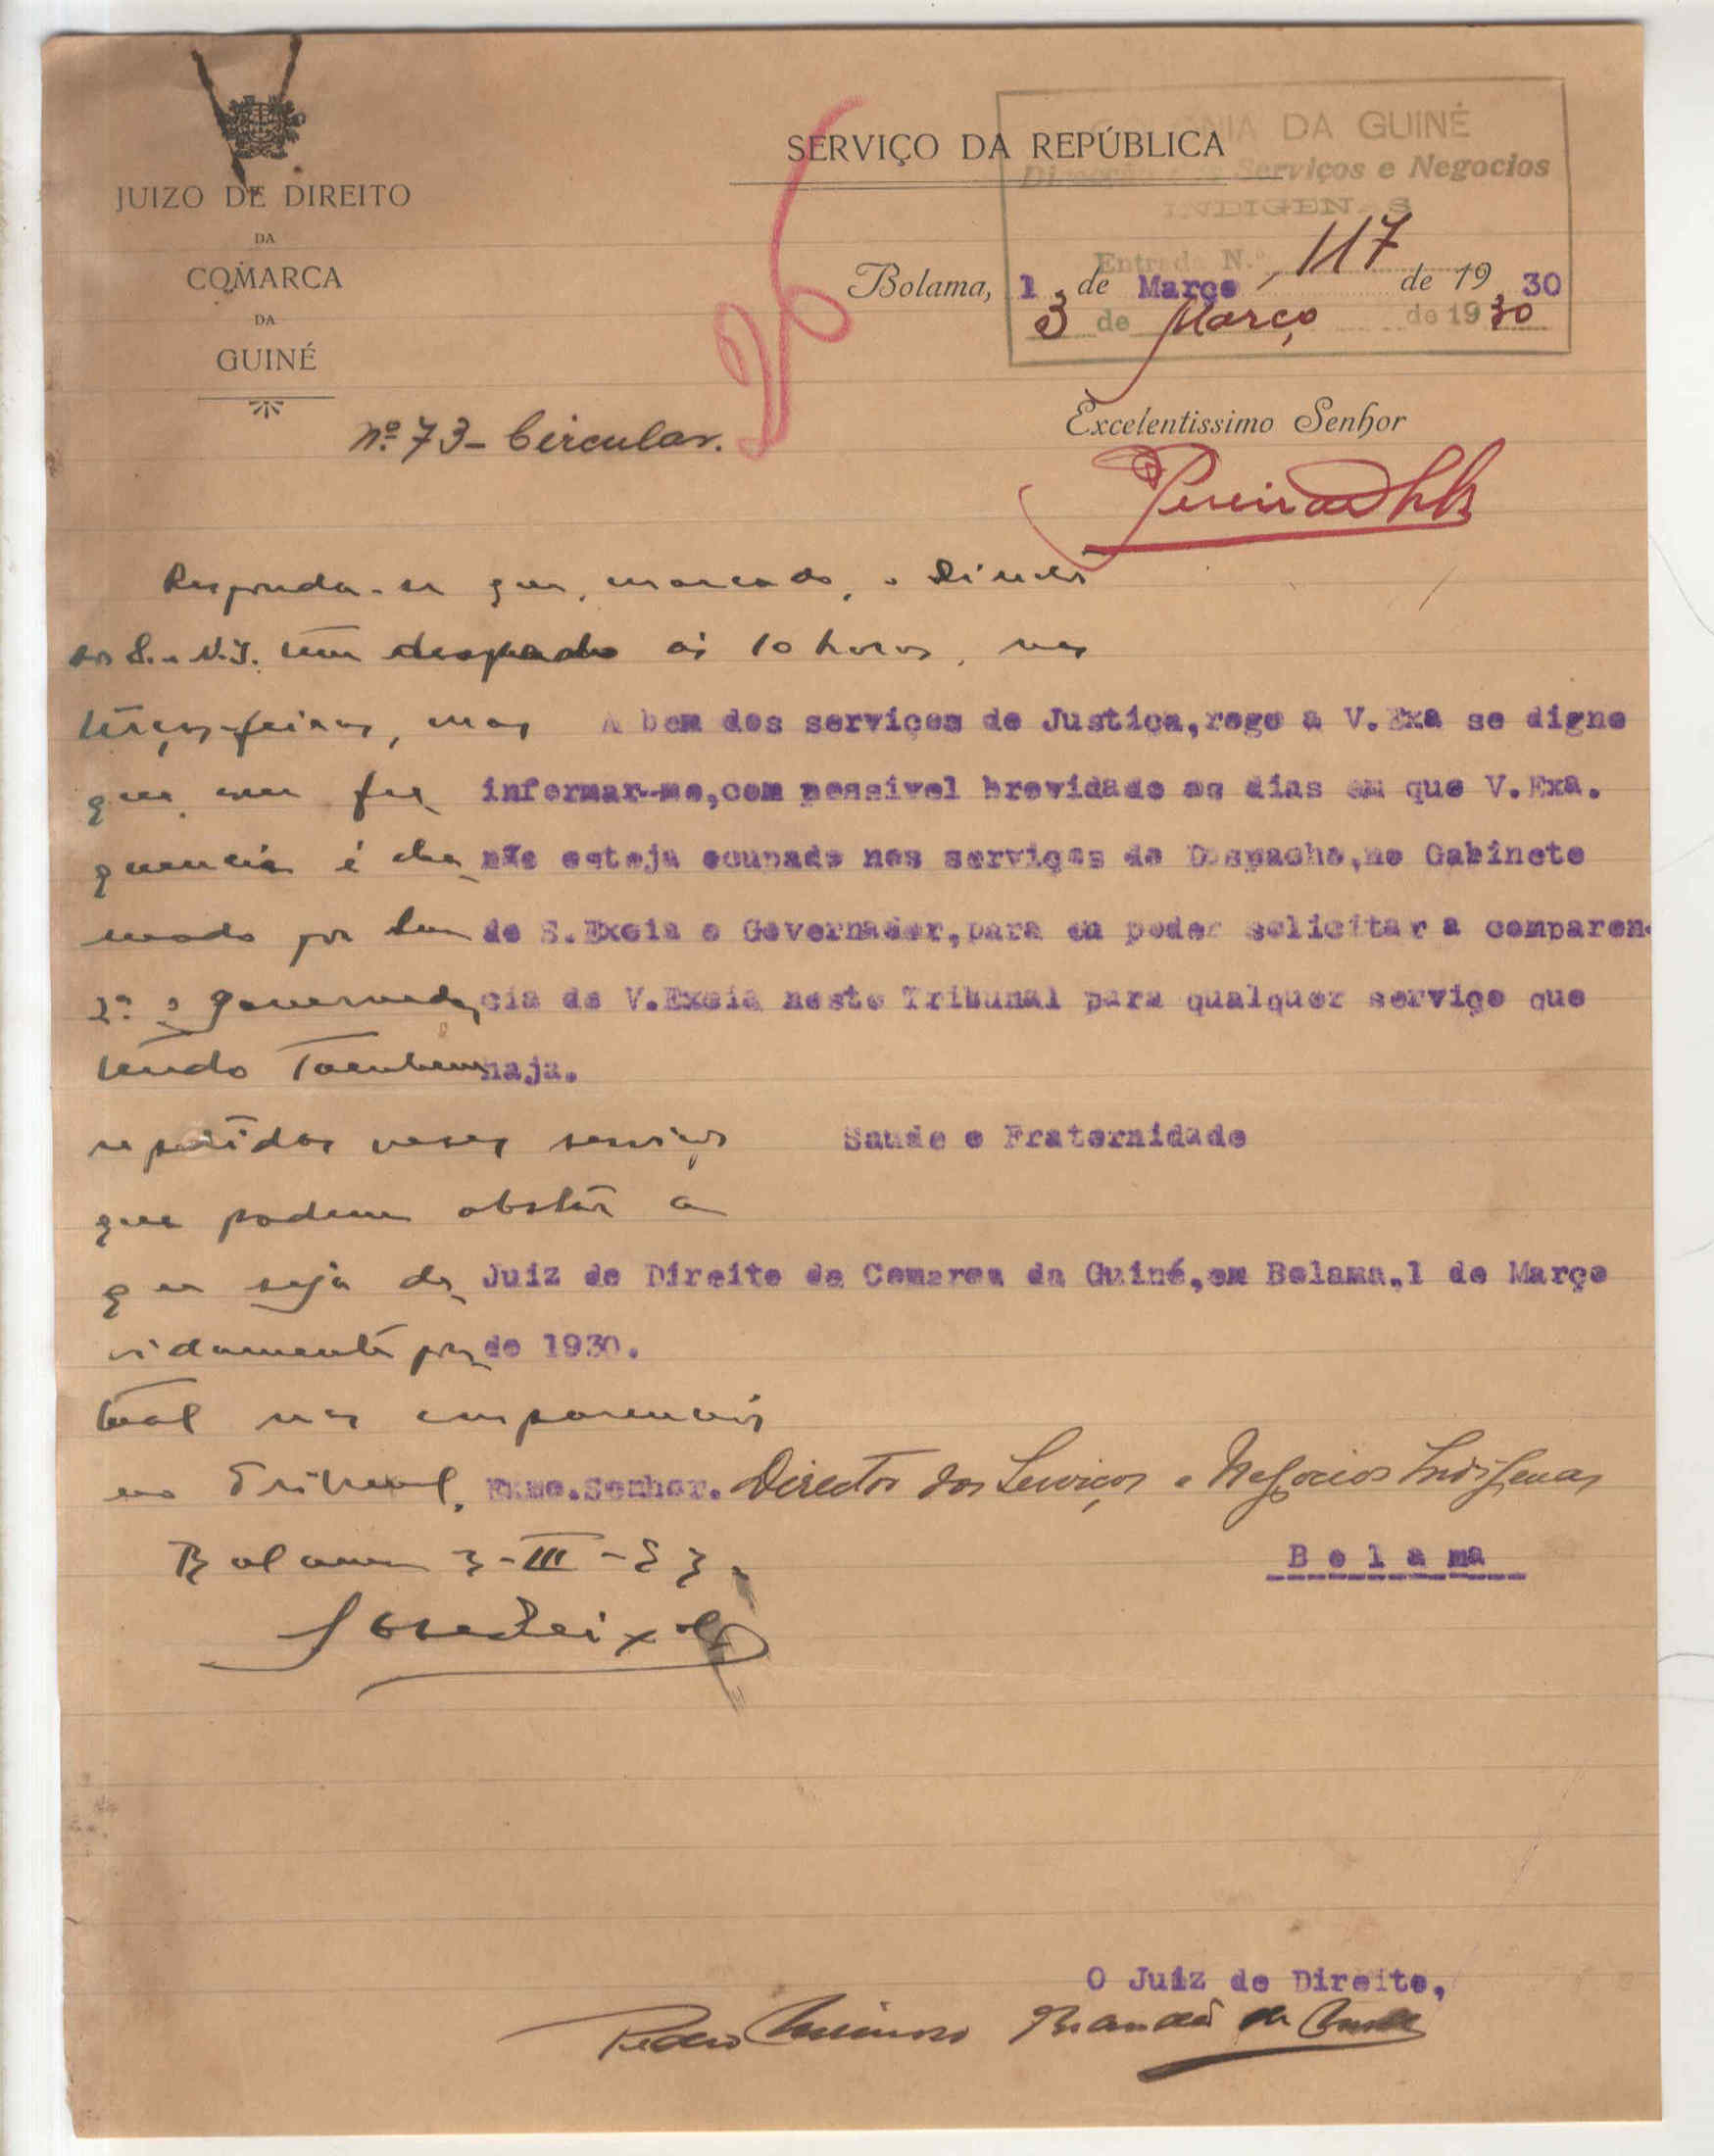 JUIZO DE DIREITO
DA
COMARCA
DA
GUINÉ
SERVIÇO DA REPÚBLICA
COLONIA DA GUINÉ
Direcção dos Serviços e Negocios
INDIGENAS
Entrada N.º 117
Bolama, 1 de Março de 1930
3 de Março de 1930
26
nº 73 - Circular.
Excelentissimo Senhor
Responda-se que, marcado, o Director
dos S. e N.I. tem despacho ás 10 horas, nas
terças-feiras, mas
que com fre
quencia é cha
mado por Sua
Ex.ª o Governador
tendo Tambem
repetidas vezes serviços
que podem obstar a
que seja de
vidamente pon
tual nas comparencias
no Tribunal.
Bolama 3-III-
A bem dos serviços de Justiça,rogo a V.Exa se digne
informar-me,com possivel brevidade os dias em que V.Exa.
não esteja ocupado nos serviços de Despacho,no Gabinete
de S.Excia o Governador,para eu poder solicitar a comparen-
cia de V.Excia neste Tribunal para qualquer serviço que
haja.
Saude e Fraternidade
Juiz de Direito da Comarca da Guiné,em Bolama,1 de Março
de 1930.
Exmo.Senhor. Director dos Serviços e Negocios Indigenas
Bolama
O Juiz de Direito,
Pedro Brandão da